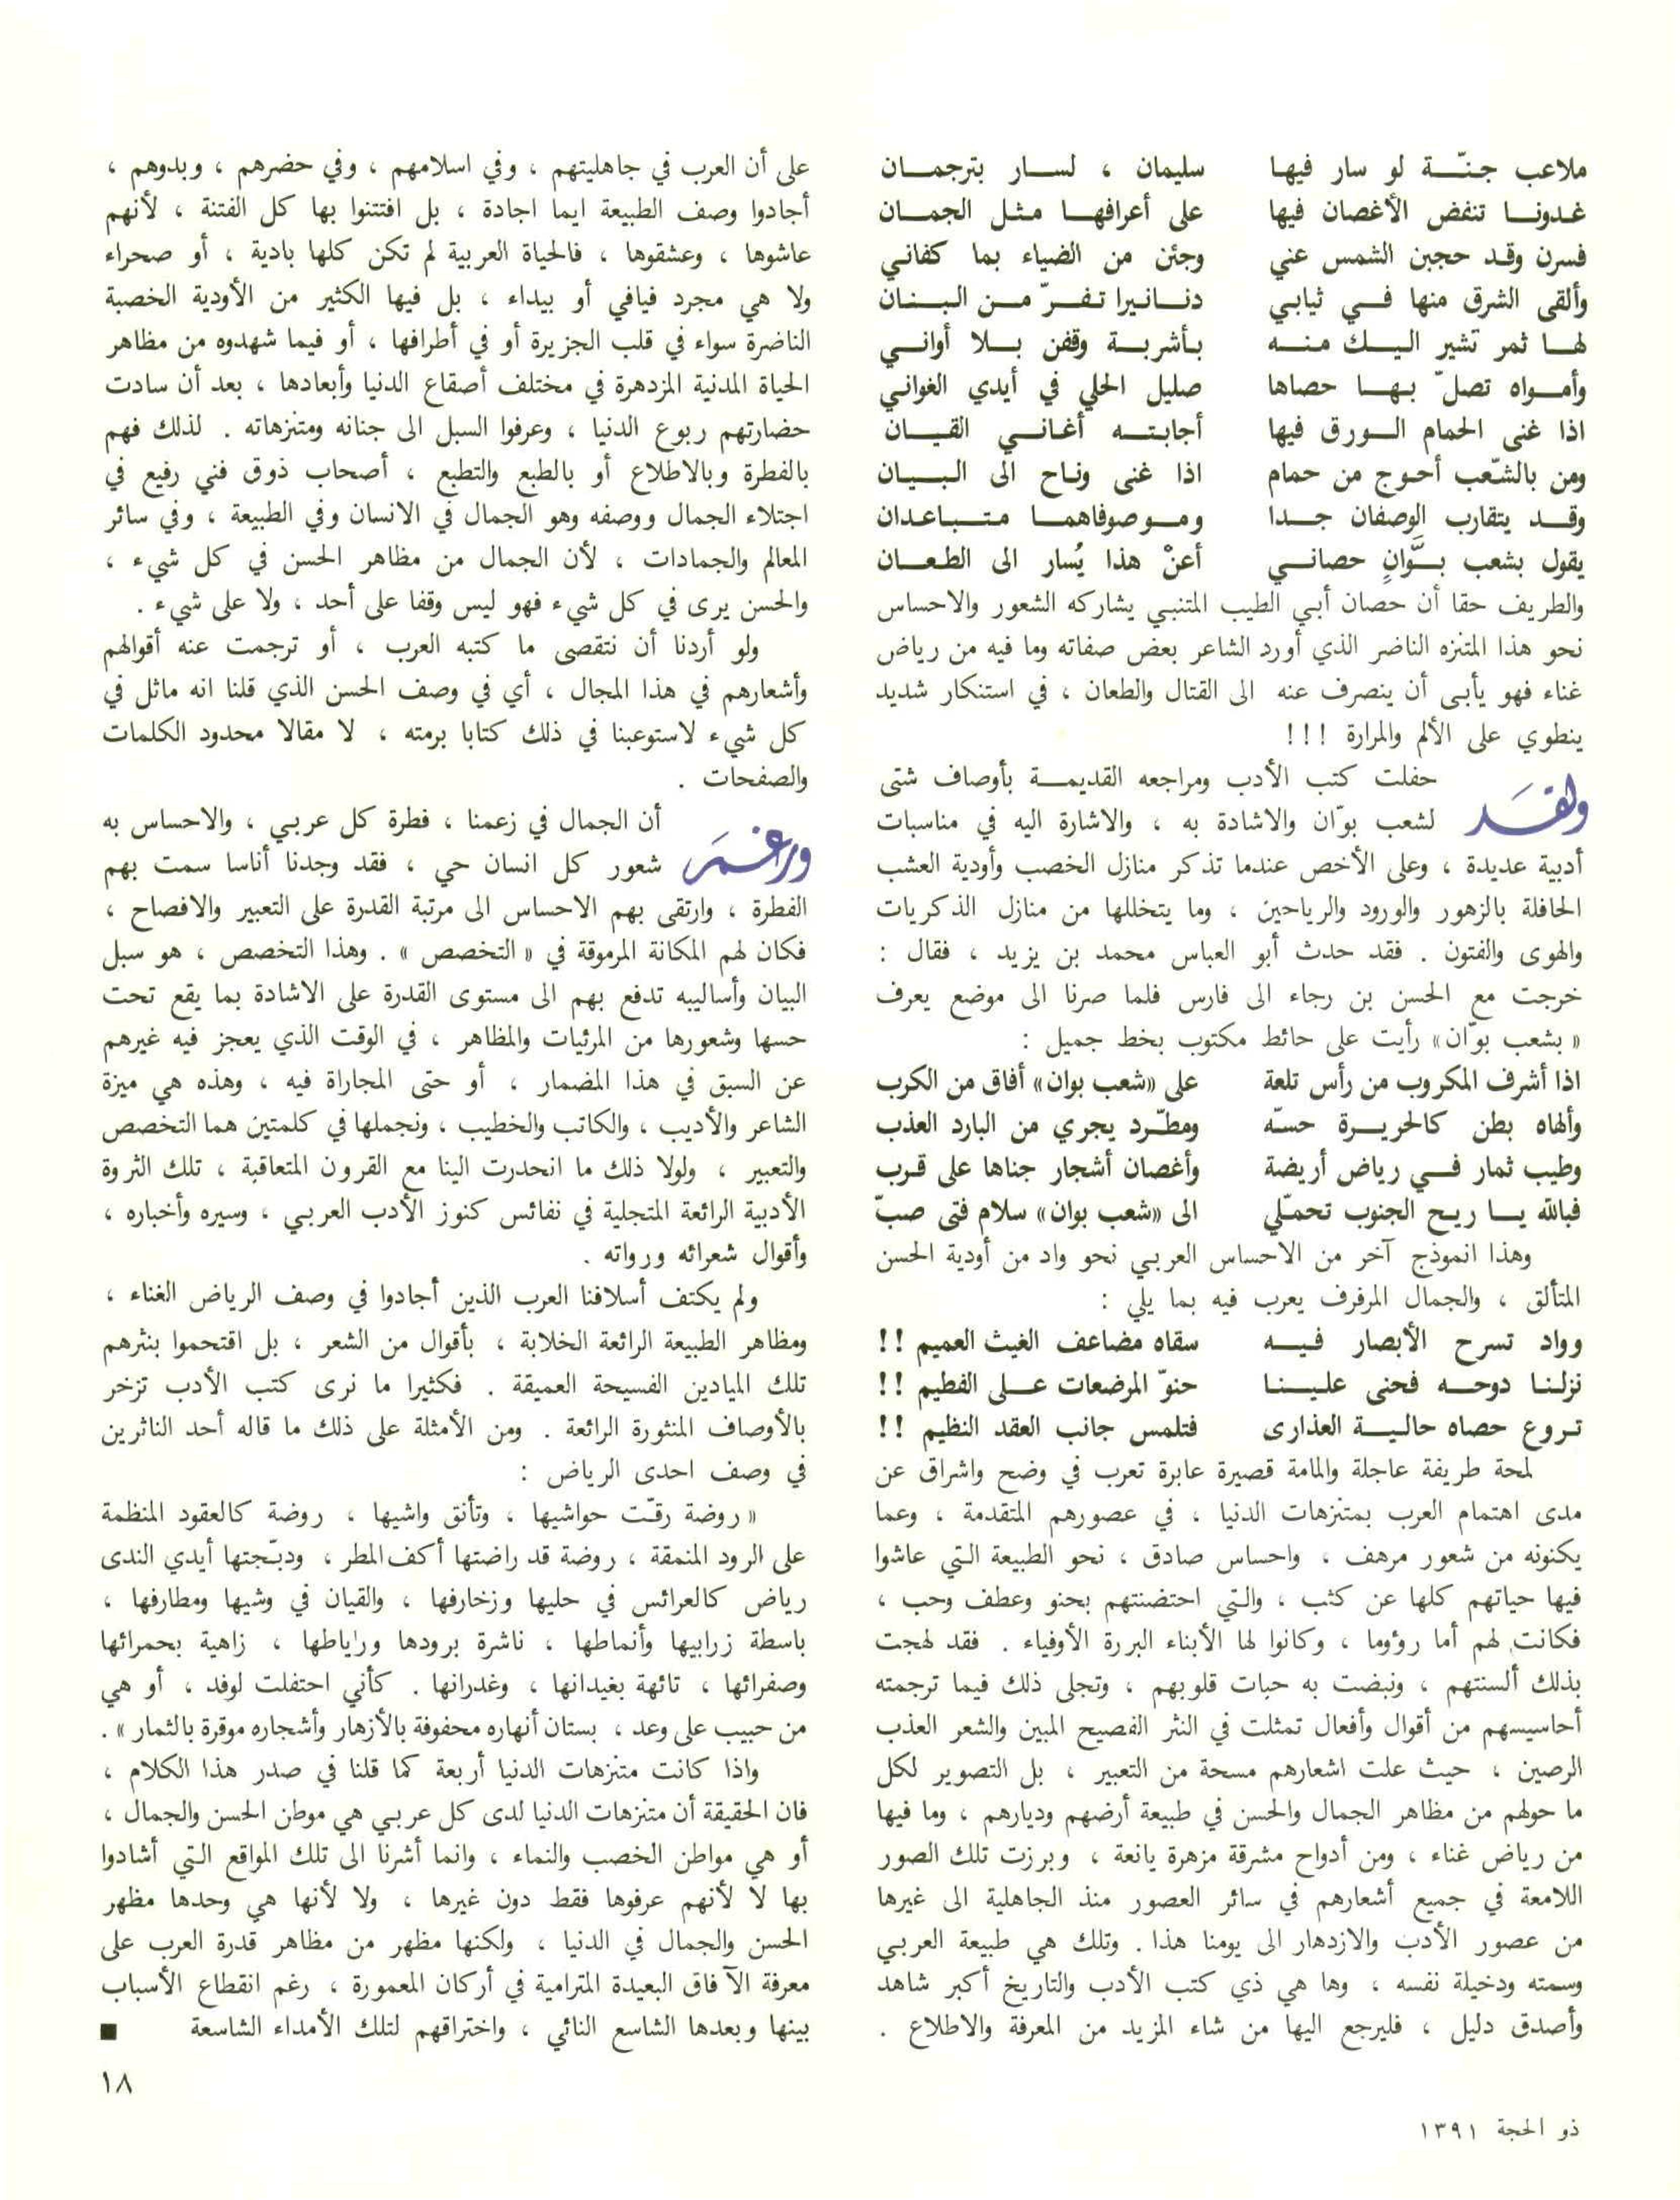 ملاعب جنّة لو سار فيها سليمان ، لسار بترجمان
غدونا تنفض الأغصان فيها على أعرافها مثل الجمان
فسرن وقد حجبن الشمس عني وجئن من الضياء بما كفاني
وألقى الشرق منها في ثيابي دنانيرا تفرّ من البنان
لها ثمر تشير اليك منه بأشربة وقفن بلا أواني
وأمواه تصلّ بها حصاها صليل الحلي في أيدي الغواني
اذا غنى الحمام الورق فيها أجابته أغاني القيان
ومن بالشّعب أحوج من حمام اذا غنى وناح الى البيان
وقد يتقارب الوصفان جدا وموصوفاهما متباعدان
يقول بشعب بوَّانٍ حصاني أعنْ هذا يُسار الى الطعان
والطريف حقا أن حصان أبي الطيب المتنبي يشاركه الشعور والاحساس
نحو هذا المتنزه الناضر الذي أورد الشاعر بعض صفاته وما فيه من رياض
غناء فهو يأبى أن ينصرف عنه الى القتال والطعان ، في استنكار شديد
ينطوي على الألم والمرارة ! ! !
ولقَد حفلت كتب الأدب ومراجعه القديمة بأوصاف شتى
لشعب بوّان والاشادة به ، والاشارة اليه في مناسبات
أدبية عديدة ، وعلى الأخص عندما تذكر منازل الخصب وأودية العشب
الحافلة بالزهور والورود والرياحين ، وما يتخللها من منازل الذكريات
والهوى والفتون . فقد حدث أبو العباس محمد بن يزيد ، فقال :
خرجت مع الحسن بن رجاء الى فارس فلما صرنا الى موضع يعرف
« بشعب بوّان» رأيت على حائط مكتوب بخط جميل :
اذا أشرف المكروب من رأس تلعة على «شعب بوان» أفاق من الكرب
وألهاه بطن كالحريرة حسّه ومطّرد يجري من البارد العذب
وطيب ثمار في رياض أريضة وأغصان أشجار جناها على قرب
فبالله يا ريح الجنوب تحمّلي الى «شعب بوان» سلام فتى صبّ
وهذا انموذج آخر من الاحساس العربي نحو واد من أودية الحسن
المتألق ، والجمال المرفرف يعرب فيه بما يلي :
وواد تسرح الأبصار فيه سقاه مضاعف الغيث العميم ! !
نزلنا دوحه فحنى علينا حنوّ المرضعات على الفطيم ! !
تروع حصاه حالية العذارى فتلمس جانب العقد النظيم ! !
لمحة طريفة عاجلة والمامة قصيرة عابرة تعرب في وضح واشراق عن
مدى اهتمام العرب بمتنزهات الدنيا ، في عصورهم المتقدمة ، وعما
يكنونه من شعور مرهف ، واحساس صادق ، نحو الطبيعة التي عاشوا
فيها حياتهم كلها عن كثب ، والتي احتضنتهم بحنو وعطف وحب ،
فكانت لهم أما رؤوما ، وكانوا لها الأبناء البررة الأوفياء . فقد لهجت
بذلك ألسنتهم ، ونبضت به حبات قلوبهم ، وتجلى ذلك فيما ترجمته
أحاسيسهم من أقوال وأفعال تمثلت في النثر الفصيح المبين والشعر العذب
الرصين ، حيث علت اشعارهم مسحة من التعبير ، بل التصوير لكل
ما حولهم من مظاهر الجمال والحسن في طبيعة أرضهم وديارهم ، وما فيها
من رياض غناء ، ومن أدواح مشرقة مزهرة يانعة ، وبرزت تلك الصور
اللامعة في جميع أشعارهم في سائر العصور منذ الجاهلية الى غيرها
من عصور الأدب والازدهار الى يومنا هذا . وتلك هي طبيعة العربي
وسمته ودخيلة نفسه ، وها هي ذي كتب الأدب والتاريخ أكبر شاهد
وأصدق دليل ، فليرجع اليها من شاء المزيد من المعرفة والاطلاع .
على أن العرب في جاهليتهم ، وفي اسلامهم ، وفي حضرهم ، وبدوهم ،
أجادوا وصف الطبيعة ايما اجادة ، بل افتتنوا بها كل الفتنة ، لأنهم
عاشوها ، وعشقوها ، فالحياة العربية لم تكن كلها بادية ، أو صحراء
ولا هي مجرد فيافي أو بيداء ، بل فيها الكثير من الأودية الخصبة
الناضرة سواء في قلب الجزيرة أو في أطرافها ، أو فيما شهدوه من مظاهر
الحياة المدنية المزدهرة في مختلف أصقاع الدنيا وأبعادها ، بعد أن سادت
حضارتهم ربوع الدنيا ، وعرفوا السبل الى جنانه ومتنزهاته . لذلك فهم
بالفطرة وبالاطلاع أو بالطبع والتطبع ، أصحاب ذوق فني رفيع في
اجتلاء الجمال ووصفه وهو الجمال في الانسان وفي الطبيعة ، وفي سائر
المعالم والجمادات ، لأن الجمال من مظاهر الحسن في كل شيء ،
والحسن يرى في كل شيء فهو ليس وقفا على أحد ، ولا على شيء .
ولو أردنا أن نتقصى ما كتبه العرب ، أو ترجمت عنه أقوالهم
وأشعارهم في هذا المجال ، أي في وصف الحسن الذي قلنا انه ماثل في
كل شيء لاستوعبنا في ذلك كتابا برمته ، لا مقالا محدود الكلمات
والصفحات .
ورغمَ أن الجمال في زعمنا ، فطرة كل عربي ، والاحساس به
شعور كل انسان حي ، فقد وجدنا أناسا سمت بهم
الفطرة ، وارتقى بهم الاحساس الى مرتبة القدرة على التعبير والافصاح ،
فكان لهم المكانة المرموقة في « التخصص » . وهذا التخصص ، هو سبل
البيان وأساليبه تدفع بهم الى مستوى القدرة على الاشادة بما يقع تحت
حسها وشعورها من المرئيات والمظاهر ، في الوقت الذي يعجز فيه غيرهم
عن السبق في هذا المضمار ، أو حتى المجاراة فيه ، وهذه هي ميزة
الشاعر والأديب ، والكاتب والخطيب ، ونجملها في كلمتين هما التخصص
والتعبير ، ولولا ذلك ما انحدرت الينا مع القرون المتعاقبة ، تلك الثروة
الأدبية الرائعة المتجلية في نفائس كنوز الأدب العربي ، وسيره وأخباره ،
وأقوال شعرائه ورواته .
ولم يكتف أسلافنا العرب الذين أجادوا في وصف الرياض الغناء ،
ومظاهر الطبيعة الرائعة الخلابة ، بأقوال من الشعر ، بل اقتحموا بنثرهم
تلك الميادين الفسيحة العميقة . فكثيرا ما نرى كتب الأدب تزخر
بالأوصاف المنثورة الرائعة . ومن الأمثلة على ذلك ما قاله أحد الناثرين
في وصف احدى الرياض :
« روضة رقّت حواشيها ، وتأنق واشيها ، روضة كالعقود المنظمة
على الرود المنمقة ، روضة قد راضتها أكف المطر ، ودبّجتها أيدي الندى
رياض كالعرائس في حليها وزخارفها ، والقيان في وشيها ومطارفها ،
باسطة زرابيها وأنماطها ، ناشرة برودها ورياطها ، زاهية بحمرائها
وصفرائها ، تائهة بغيدانها ، وغدرانها . كأني احتفلت لوفد ، أو هي
من حبيب على وعد ، بستان أنهاره محفوفة بالأزهار وأشجاره موقرة بالثمار » .
واذا كانت متنزهات الدنيا أربعة كما قلنا في صدر هذا الكلام ،
فان الحقيقة أن متنزهات الدنيا لدى كل عربي هي موطن الحسن والجمال ،
أو هي مواطن الخصب والنماء ، وانما أشرنا الى تلك المواقع التي أشادوا
بها لا لأنهم عرفوها فقط دون غيرها ، ولا لأنها هي وحدها مظهر
الحسن والجمال في الدنيا ، ولكنها مظهر من مظاهر قدرة العرب على
معرفة الآفاق البعيدة المترامية في أركان المعمورة ، رغم انقطاع الأسباب
بينها وبعدها الشاسع النائي ، واختراقهم لتلك الأمداء الشاسعة ■
١٨
ذو الحجة ١٣٩١